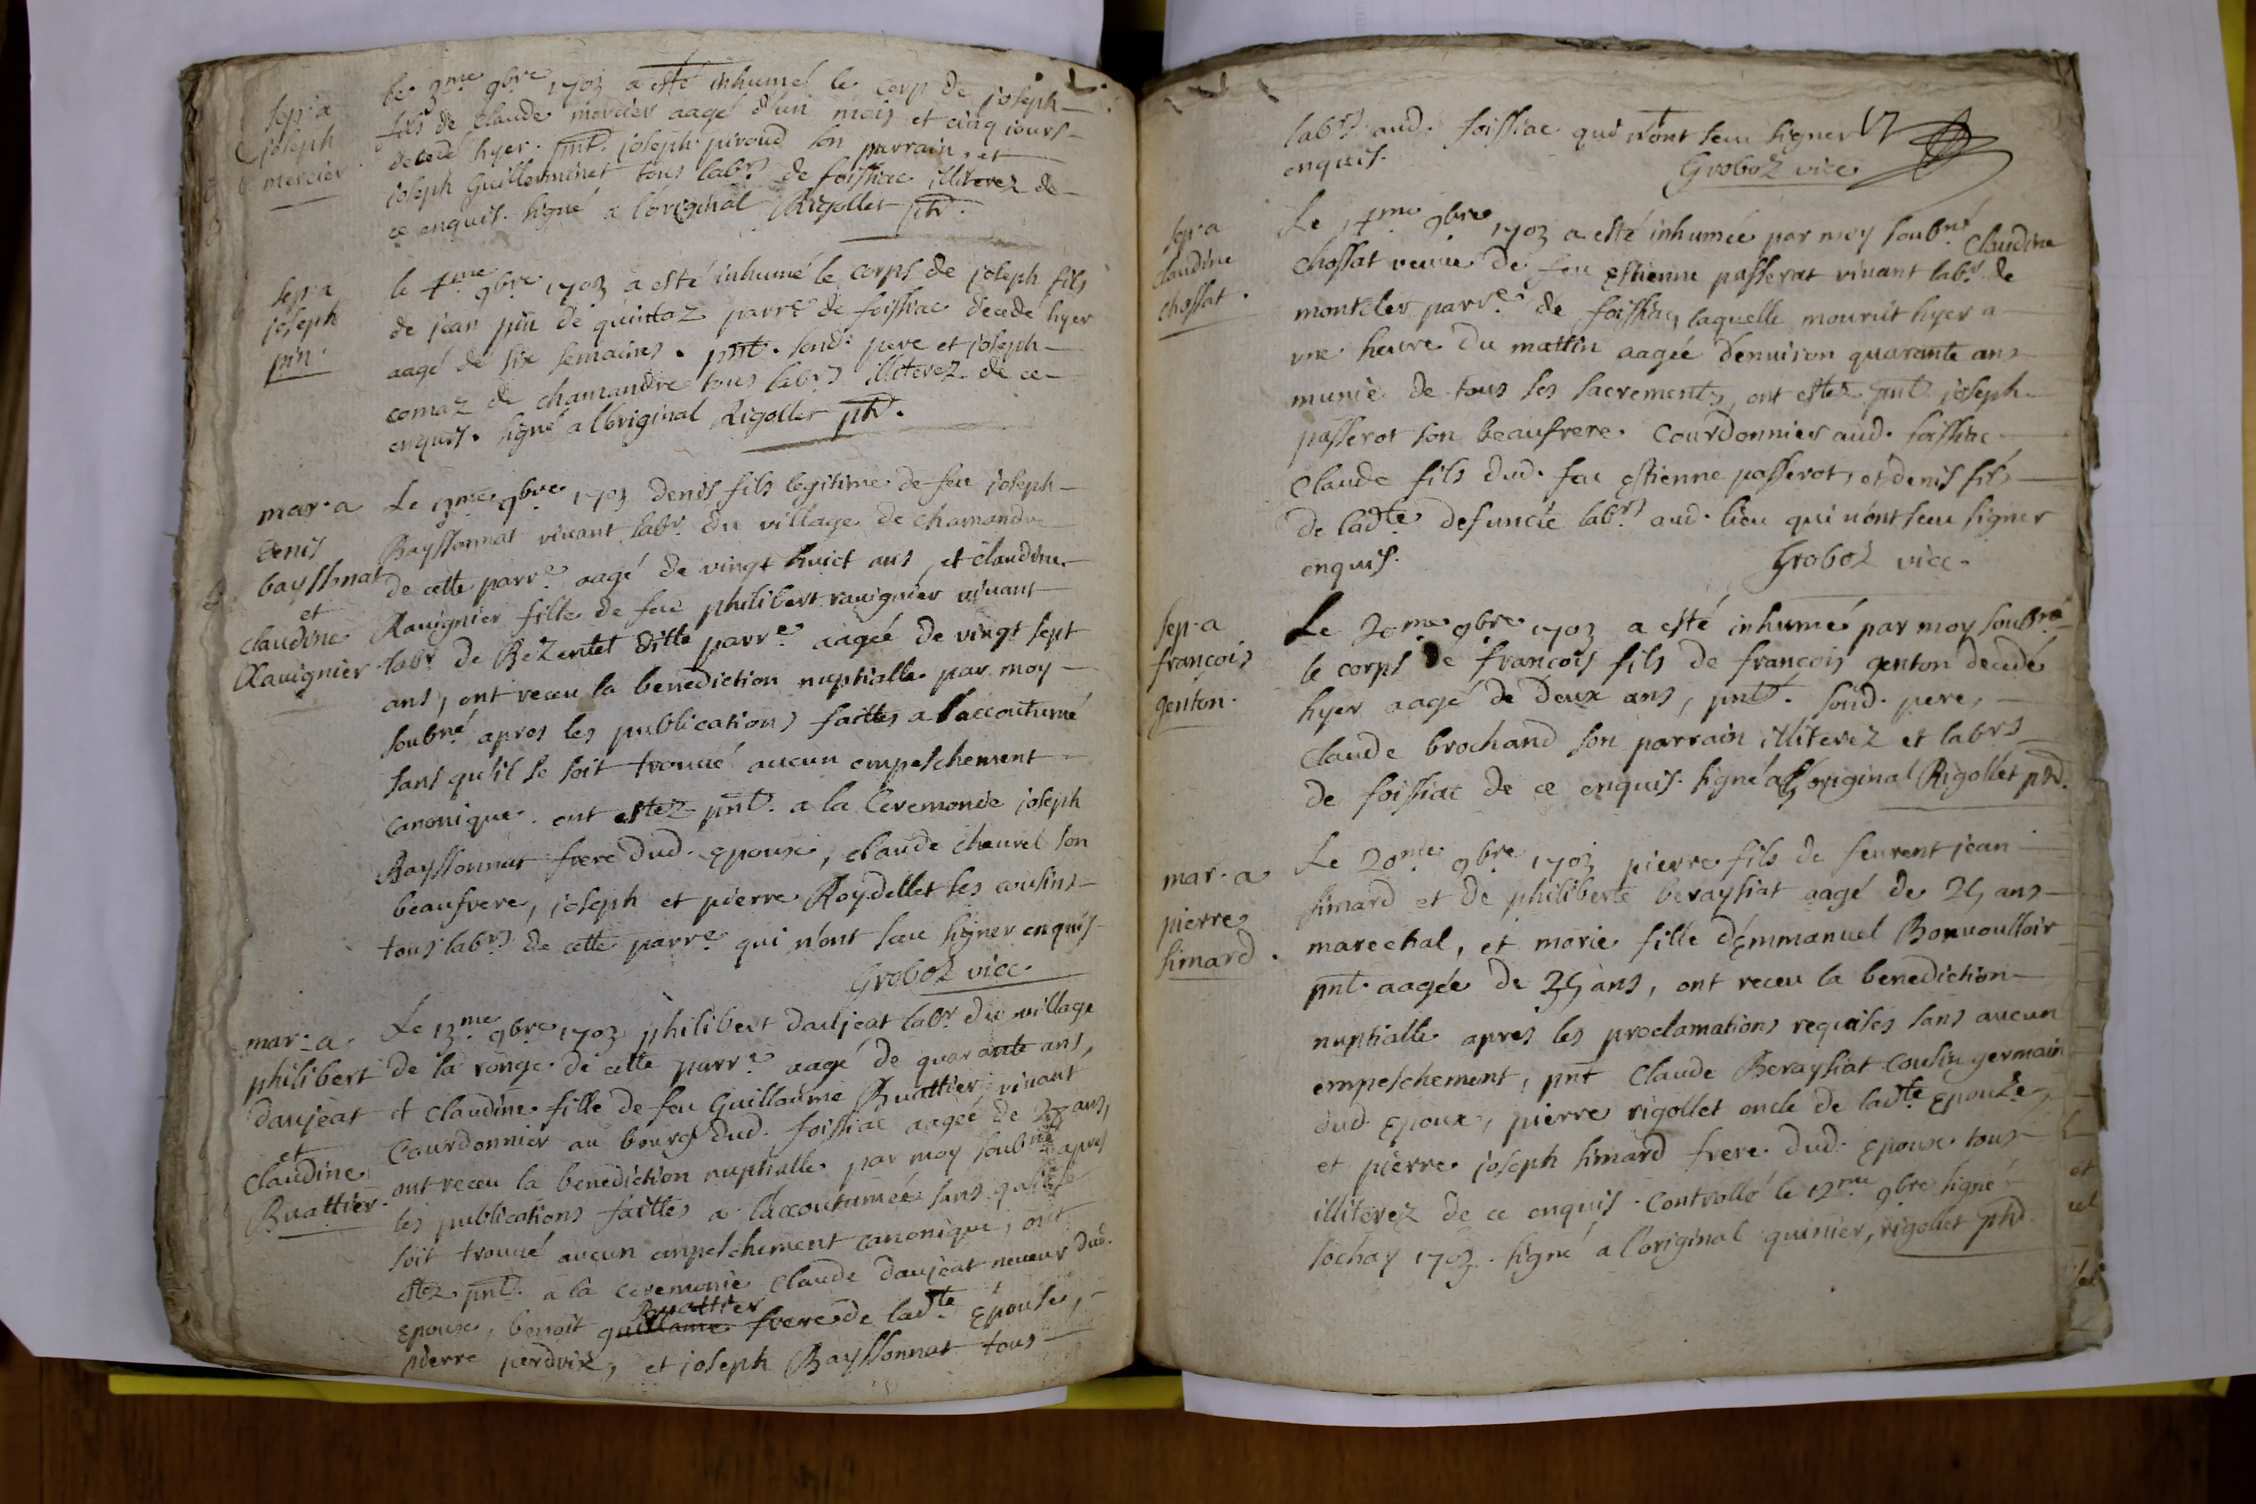 sep.a
joseph
mercier
Le 3me 9bre 1703 a esté inhumé le corp de joseph
fils de claude mercier aagé d'un mois et cinq jours
decedé hyer. pnt. joseph piroud son parrain, et
joseph Guillerminet tous labrs de foissiac illiterez de
ce enquis. signé a l'original Rigollet ptr.
sep.a
joseph
pin.
le 4me 9bre 1703 a esté inhumé le corps de joseph fils
de jean pin de quintaz parre de foissiac decedé hyer
aagé de six semaines. pnt. sond. pere et joseph
comaz de chamandre tous labrs illiterez de ce
enquis. signé a l'original Rigollet ptr.
mar.a
denis
bayssonat
et
claudine
Rauignier
Le 13me 9bre 1703 denis fils legitime de feu joseph
Bayssonnat viuant labr. du village de chamandre
de cette parre aagé de vingt huict ans, et claudine
Rauignier fille de feu philibert rauignier viuant
labr. de Bezentet ditte parre aagée de vingt sept
ans, ont receu la benediction nuptialle par moy
soubné apres les publications faittes a laccoutumé
sans qu'il se soit trouué aucun empeschement
canonique. ont estez pnt. a la Ceremonie joseph
Bayssonnat frere dud. epoux, claude cheurel son
beaufrere, joseph et pierre Roydellet ses cousins
tous labrs de cette parre qui n'ont sceu signer enquis
Groboz vice.
mar.a.
philibert
daujeat
et
claudine
Buattier.
Le 13me 9bre 1703 philibert daujeat labr du village
de la ronge de cette parre aagé de quarante ans,
et claudine fille de feu Guillaume Buattier viuant
Courdonnier au bourg dud. foissiac aagée de ans,
ont receu la benediction nuptialle par moy soubné apres
les publications faittes a laccoutumée sans qu'il se
soit trouué aucun empeschement canonique, ont
estez pnt. a la ceremonie claude daujeat neueur dud.
epoux, benoit guillaume Buattier frere de ladte épouse,
pierre perdrix, et joseph Bayssonnat tous
labrs aud. foissiac qui n'ont sceu signer
enquis.
Groboz vice
sep.a
claudine
chossat.
Le 14me 9bre 1703 a esté inhumée par moy soubné Claudine
chossat veuue de feu estienne passerat viuant labr. de
montcler parre de foissiac, laquelle mourut hyer a
vne heure du mattin aagée denuiron quarante ans
munie de tous ses sacrements, ont estez pnt. joseph
passerot son beaufrere. Courdonnier aud. foissiac
Claude fils dud. feu estienne passerot, et denis fils
de ladte defuncte labrs aud. lieu qui n'ont sceu signer
enquis.
Groboz vice.
sep.a
francois
genton.
Le 20me 9bre 1703 a esté inhumé par moy soubné
le corps de francois fils de francois genton decedé
hyer aagé de deux ans, pnt. sond. pere,
Claude brochand son parrain illiterez et labrs
de foissiac de ce enquis. signé a l'original Rigollet ptr.
mar.a
pierre
simard.
Le 20me 9bre 1703 pierre fils de feu rent jean
simard et de philiberte beraysiat aagé de 25 ans
marechal, et marie fille d'Emmanuel Bonuoulloir
pnt. aagée de 25 ans, ont receu la benediction
nuptialle apres les proclamations requises sans aucun
empeschement, pnt Claude Beraysiat Cousin germain
dud. epoux, pierre rigollet oncle de ladte epouze,
et pierre joseph simard frere dud. epoux tous
illiterez de ce enquis. Controllé le 12me 9bre signé
sochay 1703. signé a l'original quinier, rigollet ptr.